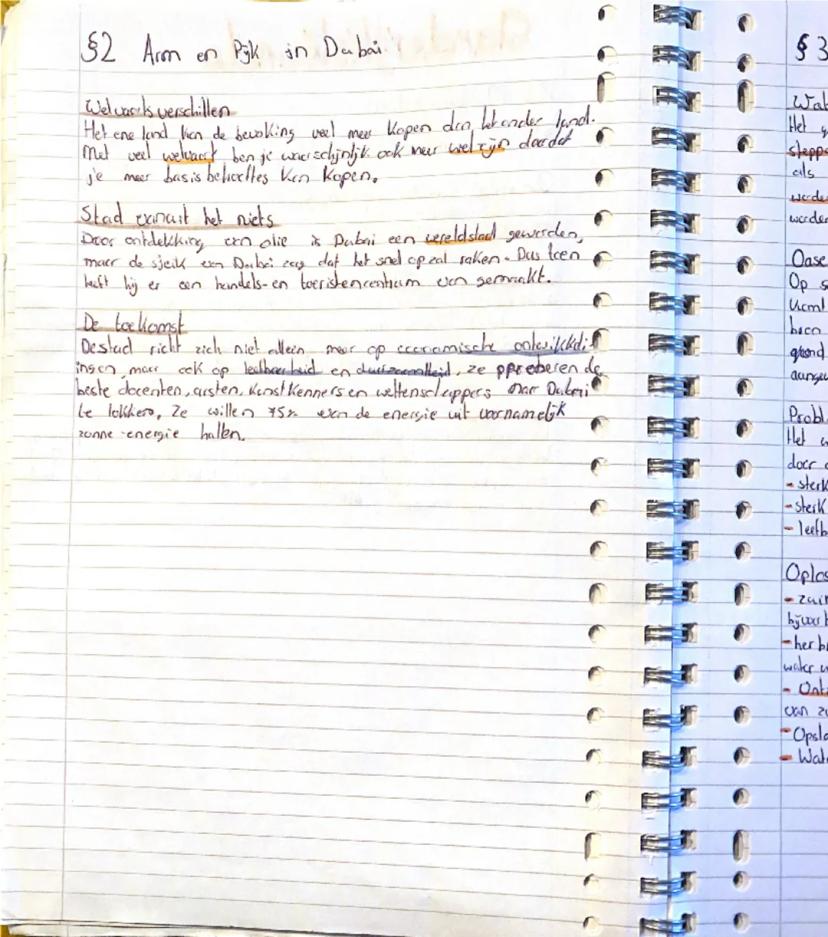 §2 Arm en Rijk in Dubai
Welvaartsverschillen
Het ene land kan de bevolking veel meer kopen dan het ander land.
Met veel welvaart ben je waarschijnlijk ook meer welzijn doordat
je meer basisbehoeftes kan kopen.
Stad vanuit het niets
Door ontdekking van olie is Dubai een wereldstad geworden,
maar de sjeik van Dubai zag dat het snel op zal raken. Dus toen
heeft hij er een handels- en toeristencentrum van gemaakt.
De toekomst
De stad richt zich niet alleen meer op economische ontwikkel-
ingen, maar ook op leefbaarheid en duurzaamheid, ze proberen de
beste docenten, artsen, kunstkenners en wettenschappers naar Dubai
te lokken, Ze willen 75% van de energie uit voornamelijk
zonne-energie hallen.
§3
Het
stepp
als
werde
worden
Oase
Op s
komt
grond
Probl
Het w
door
- sterk
- sterk
- leefb
Oplos
water
van
- Opsla
- Wate